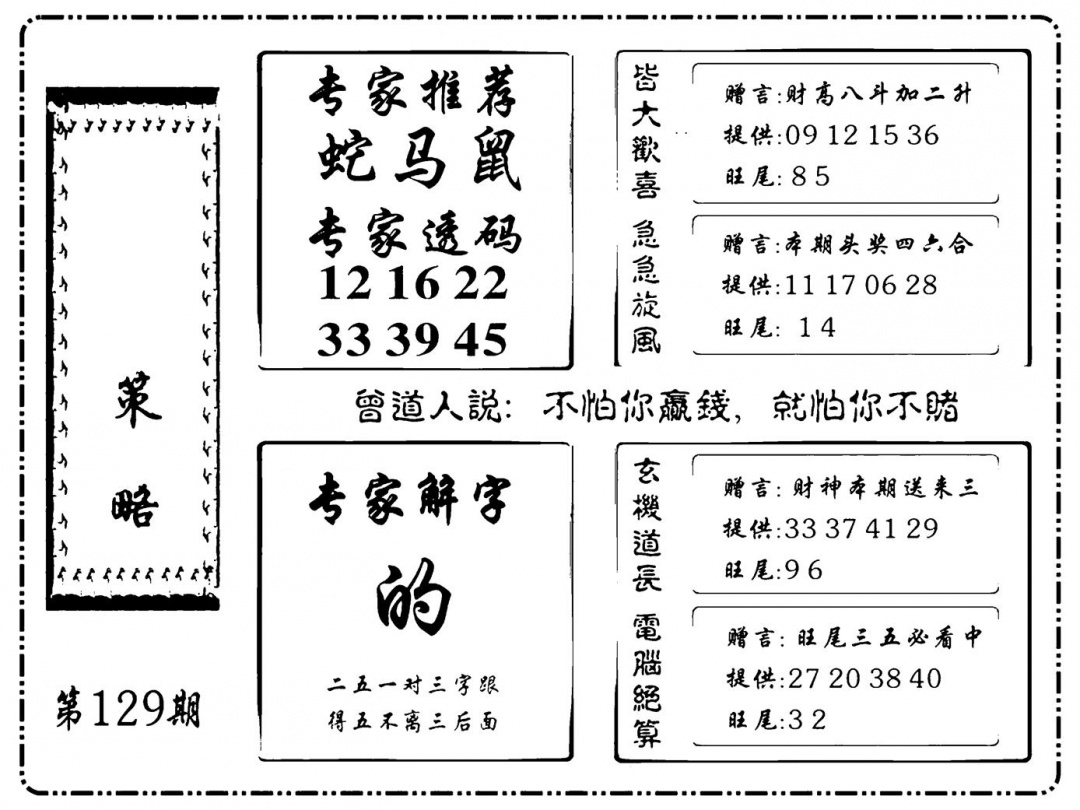 策略
第129期
专家推荐
蛇马鼠
专家透码
12 16 22
33 39 45
皆大歡喜
赠言:财高八斗加二升
提供:09 12 15 36
旺尾: 8 5
急急旋風
赠言:本期头奖四六合
提供:11 17 06 28
旺尾: 1 4
曾道人説: 不怕你贏錢, 就怕你不賭
专家解字
的
二五一对三字跟
得五不离三后面
玄機道長
赠言: 财神本期送来三
提供:33 37 41 29
旺尾:9 6
電腦絕算
赠言: 旺尾三五必看中
提供:27 20 38 40
旺尾:3 2